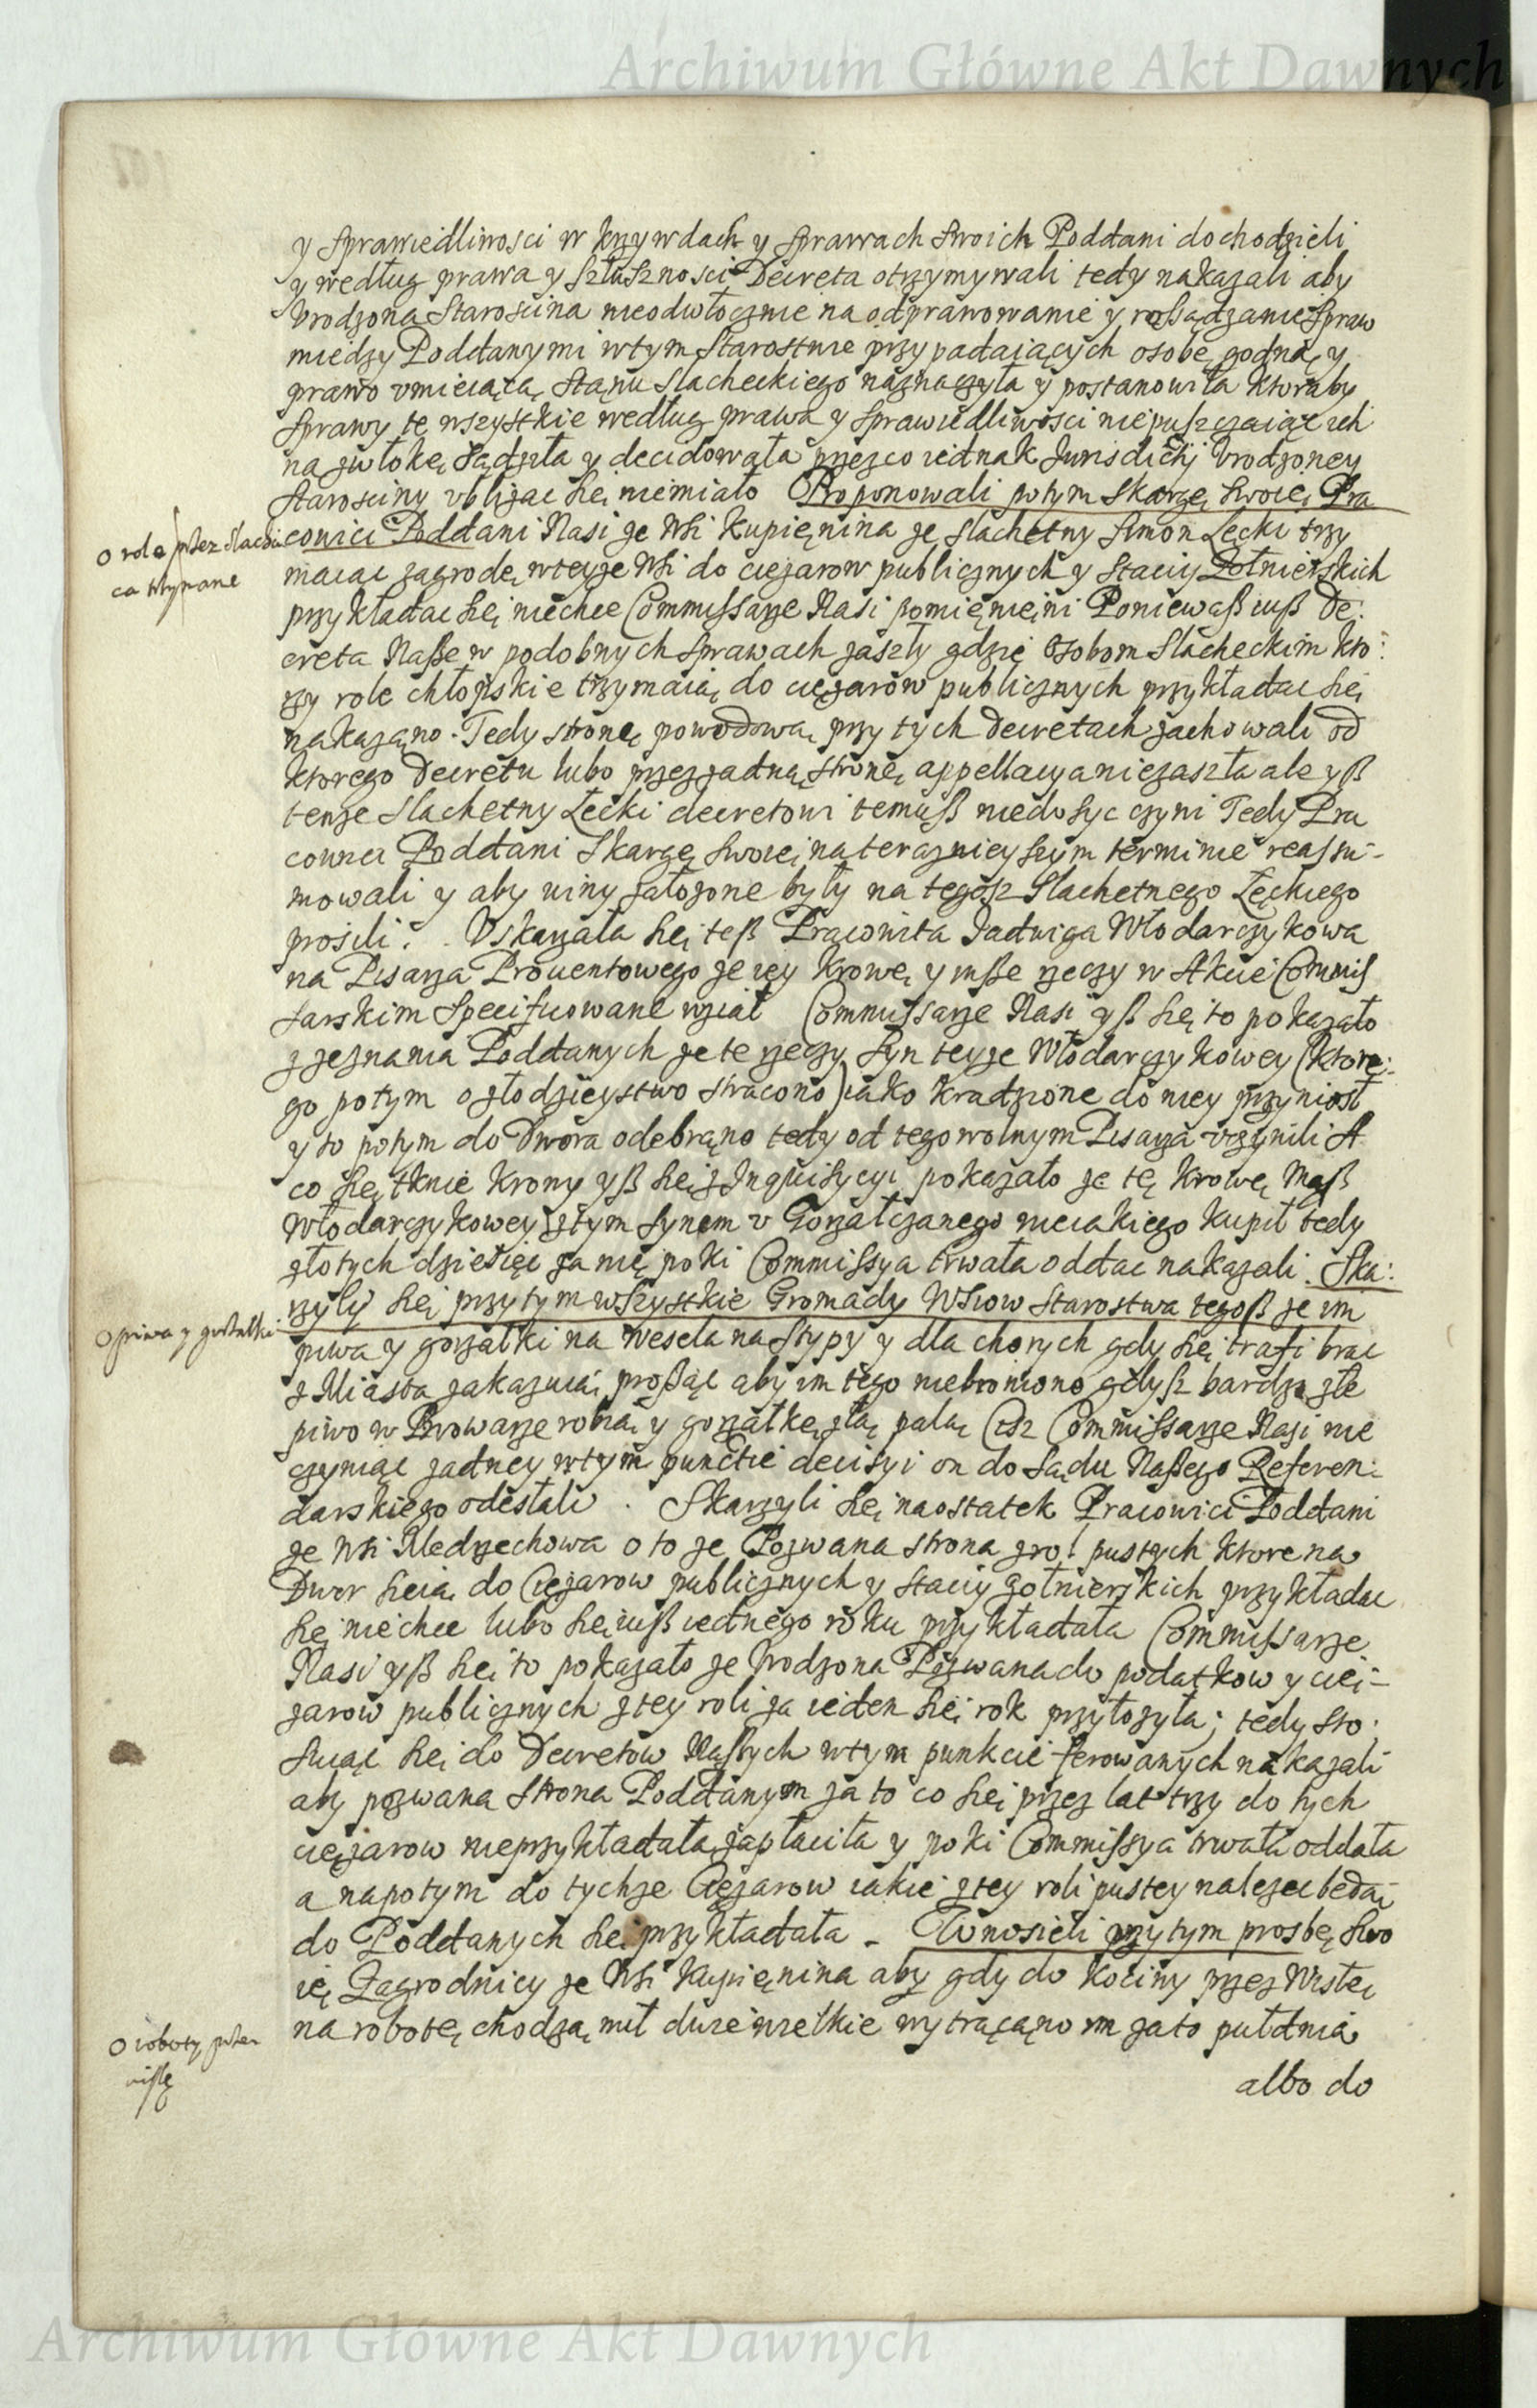 Archiwum Główne Akt Dawnych
y sprawiedliwosci w krzywdach y sprawach swoich Poddani dochodzieli
y według prawa y szłuszności Decreta otrzymywali tedy nakazali aby
Vrodzona Starościna nieodwłocznie na odprawowanie y rossądzanie spraw
miedzy Poddanymi wtym Starostwie przypadaiących osobę godną y
prawo vmieiącą Stanu Slacheckiego naznaczyła y postanowiła ktoraby
sprawy te wszystkie według prawa y sprawiedliwości niepuszczaiąc ich
na zwłokę sądziła y decidowała przezco iednak Jurisdictij Vrodzoney
Starosciny vbliżac się niemiało Proponowali potym skargę swoię Pra
cowici Poddani Nasi ze Wsi Kupięnina że Slachetny Simon Łęcki trzy
O rolę przez slachci
ca trzymane
maiac zagrodę wteyże Wsi do ciężarow publicznych y Staciy Żołnierskich
przykładac się niechce Commissarze Nasi pomięnieni Poniewaß iuß De:
creta Naße w podobnych sprawach zaszły gdzie Osobom Slacheckim kto:
rzy role chłopskie trzymaią do ciężarow publicznych przykładac się
nakazano. Tedy stronę powodową przy tych Decretach zachowali od
ktorego Decretu lubo przez żadną stronę appellacya niezaszła ale yß
tenże Slachetny Łęcki decretowi temuß niedosyc czyni Tedy Pra
cowici Poddani skargę swoię na teraznieyszym terminie reassu-
mowali y aby winy założone były na tegosz Slachetnego Łęckiego
prosili. Vskarzała się teß Pracowita Jadwiga Włodarczykowa
na Pisarza Prouentowego że iey krowę y inße rzeczy w Akcie Commis
sarskim specificowane wział Commissarze Nasi yß się to pokazało
z zeznania Poddanych że te rzeczy syn teyże Włodarczykowey (ktore:
go potym o złodzieystwo stracono) iako kradzione do niey przyniosł
y to potym do Dwora odebrąno tedy od tego wolnym Pisarza vczynili A
co się tknie krowy yß się z Inquisicyi pokazało że tę krowę Mąß
Włodarczykowey z tym synem v Gorzałczanego nieiakiego kupił tedy
złotych dziesięc za nię poki Commissya trwała oddac nakazali. Ska:
rzyly się przytym wszystkie Gromady Wsiow Starostwa tegoß że im
O piwa y gorzałki
piwa y gorzałki na wesela na Stypy y dla chorych gdy się trafi brac
z Miasta zakazuią proßąc aby im tego niebroniono gdysz bardzo złe
piwo w Browarze robią y gorzałkę złą palą Cosz Commissarze Nasi nie
czyniąc żadney wtym punctie decisyi on do Sądu Naßego Referen:
darskiego odesłali. Skarzyli się naostatek Pracowici Poddani
ze Wsi Medrzechowa o to że Pozwana strona z rol pustych ktore na
Dwor sieią do Ciężarow publicznych y staciy żołnierskich przykładac
się niechce lubo się iuß iednego roku przykładała Commissarze
Nasi yß się to pokazało że Vrodzona Pozwana do podatkow y cię-
żarow publicznych z tey roli za ieden się rok przyłożyła; tedy sto:
suiąc się do Decretow Naßych wtym punkcie ferowanych nakazali
aby pozwana strona Poddanym za to co się przez lat trzy do tych
ciężarow nieprzykładała zapłaciła y poki Commissya trwała oddała
a napotym do tychże Ciężarow iakie z tey roli pustey należec będą
do Poddanych się przykładała - Wnosieli przytym prosbę swo
ię Zagrodnicy ze Wsi Kupięnina aby gdy do Kociny przez Wisłę
na robotę chodzą mil dwie wielkie wytrącąno im za to puł dnia
O roboty przez
wisłę
albo do
Archiwum Główne Akt Dawnych